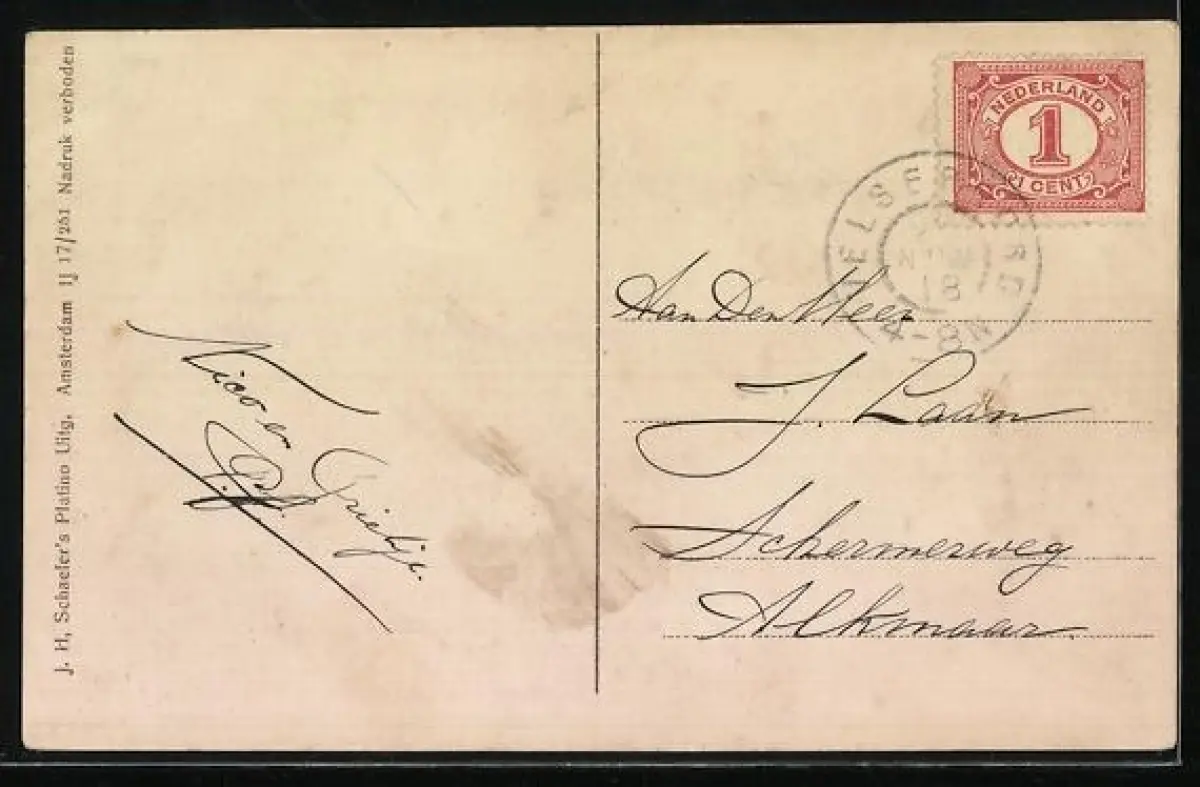 J. H. Schaefer's Platino Uitg. Amsterdam IJ 17/251 Nadruk verboden
NEDERLAND
1
1 CENT
18
4-8N
Aan Den Heer
J. Laan
Schermerweg
Alkmaar.
Nico en
Grietje.